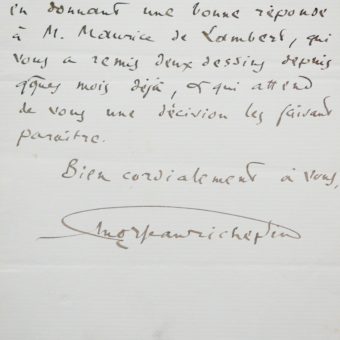 en donnant une bonne réponse
à M. Maurice de Lambert, qui
vous a remis deux dessins depuis
qques mois déjà, & qui attend
de vous une décision les faisant
paraître.
Bien cordialement à vous,
Jean Richepin